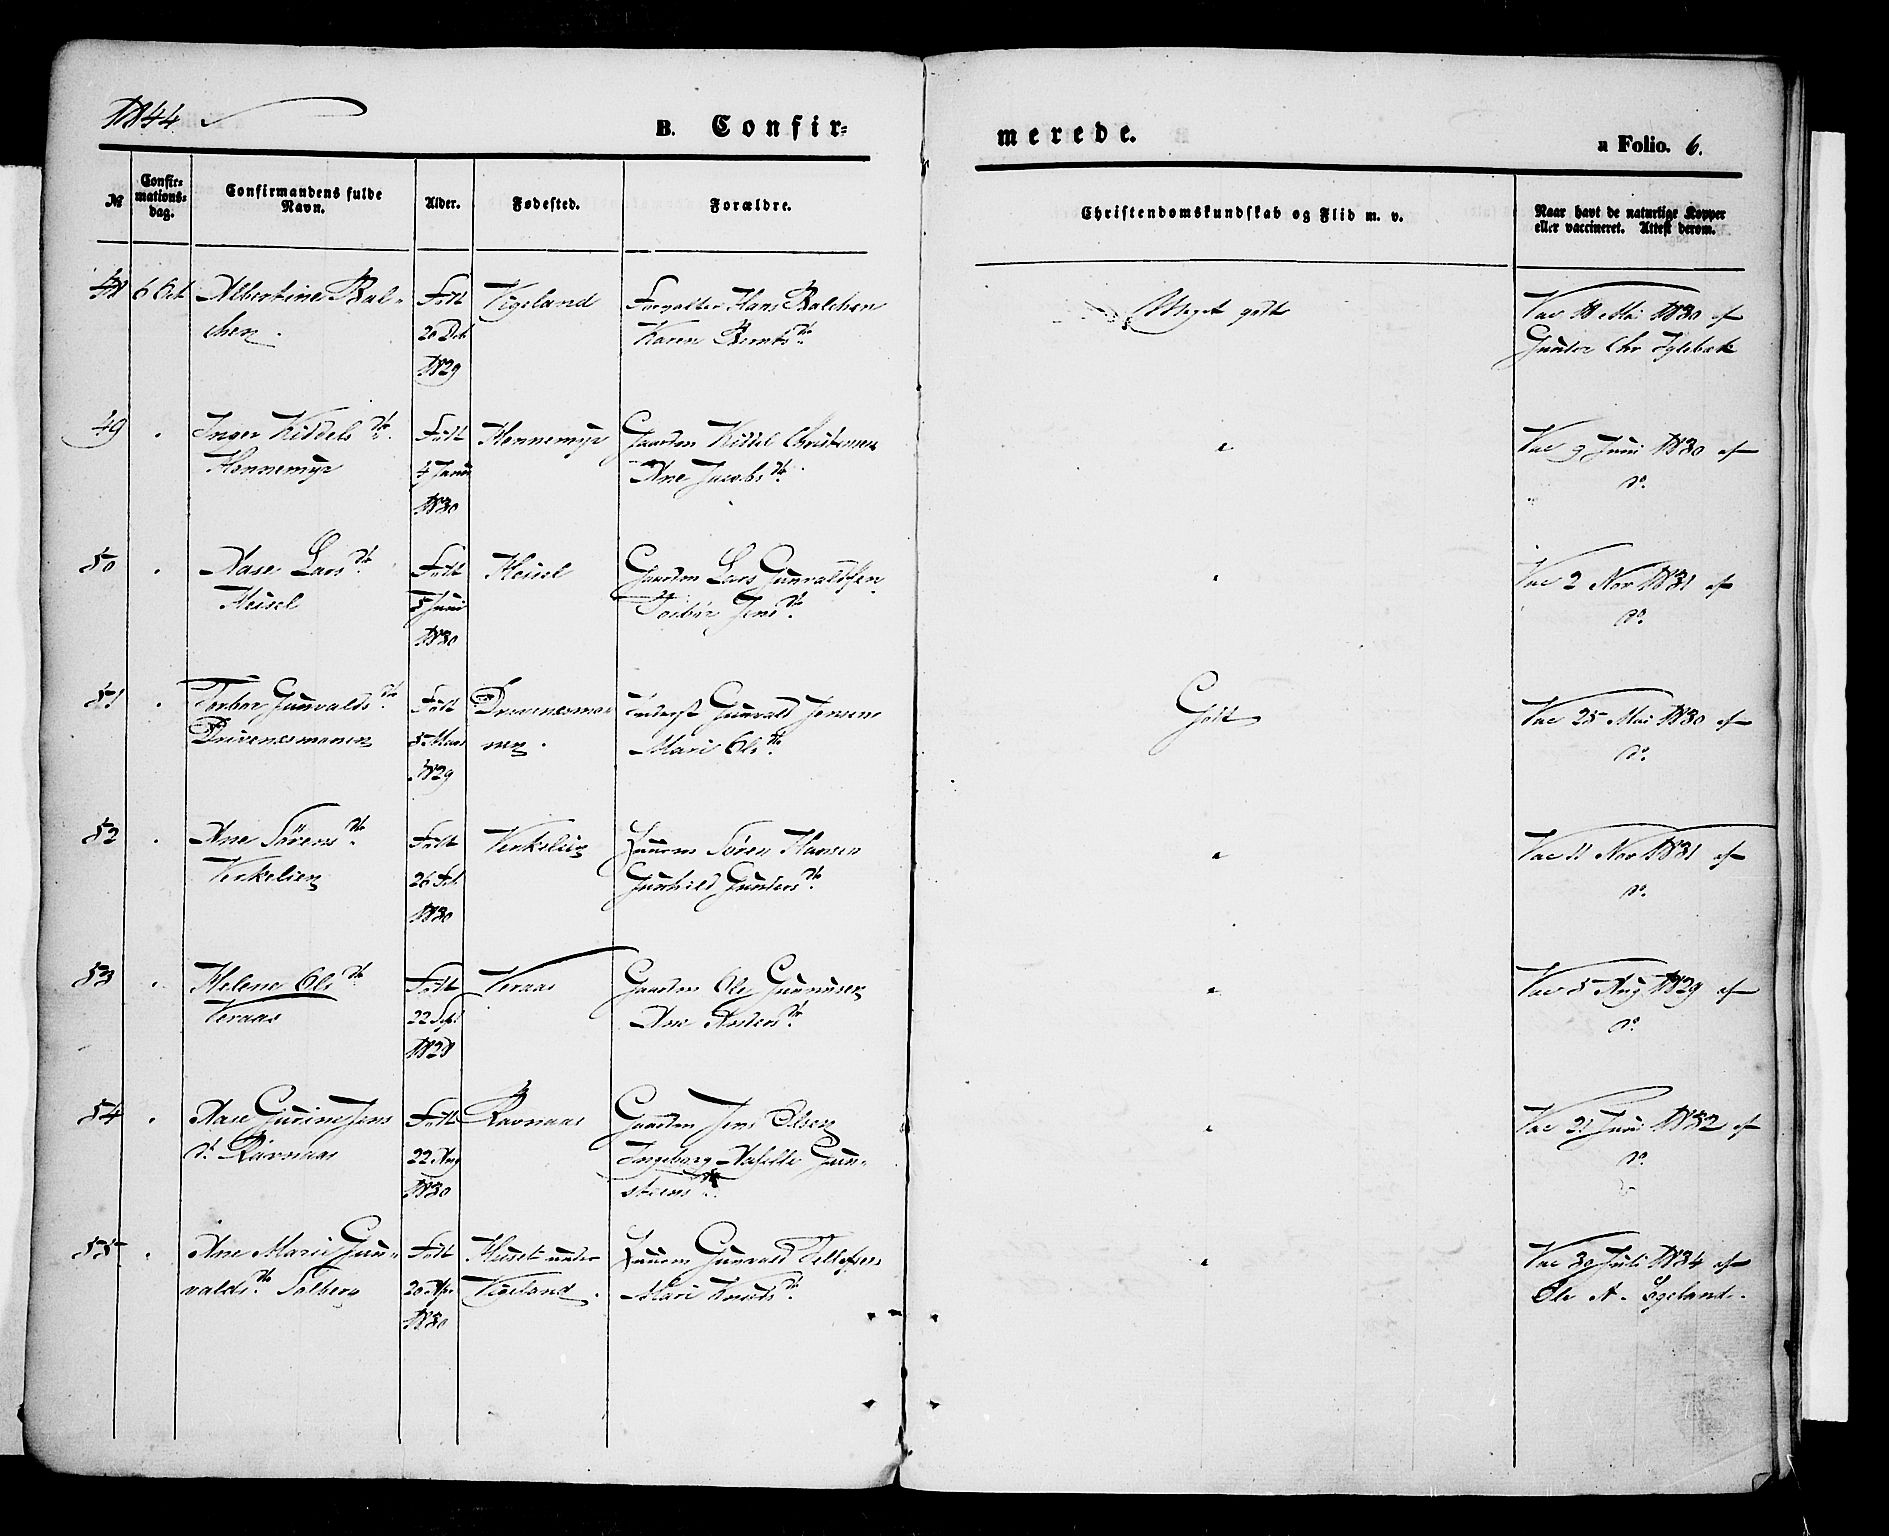 1844
B. Confir=
merede.
a Folio. 6.
№
Confir-
mations-
dag.
Confirmandens fulde
Navn.
Alder.
Fødested.
Forældre.
Christendomskundskab og Flid m. v.
Naar havt de naturlige Kopper
eller vaccineret. Attest derom.
48 6 Oct Albertine Bal-
chen.
Født
20 Oct
1829
Vigeland
Forvalter Hans Balchen
Karen Bernts dtr.
Meget godt
Vac 18 Mai 1830 af
Gunder Chr Iglebæk
49 Inger Kiddels dtr.
Hennemyr
Født
4 Janu
1830
Hennemyr
Gaardm Kiddel Christensen
Ane Jacobs dtr.
Vac 9 Juni 1830 af
do.
50 Aase Lars dtr.
Heisel
Født
5 Juni
1830
Heisel
Gaardm Lars Gunvaldsen
Torbor Jens dtr.
Vac 2 Nov 1831 af
do.
51 Torbor Gunvalds dtr
Drivenesmoen
Født
5 Mars
1829
Drivenesmo-
en.
Inderst Gunvald Jensen
Mari Ols dtr.
Godt
Vac 25 Mai 1830 af
do.
52 Ane Sørens dtr.
Verkelien
Født
26 Feb
1830
Verkelien
Huusm Søren Hansen
Gunhild Gunders dtr.
Vac 11 Nov 1831 af
do.
53 Helene Ols dtr.
Veraas
Født
22 Sept
1828
Veraas
Gaardm Ole Gunnusen
Ane Anders dtr.
Vac 5 Aug 1829 af
do.
54 Aase Gurine Jens
dtr. Ravnaas
Født
22 Aug
1830
Ravnaas
Gaardm Jens Olsen
Ingeborg Gun-
steens dtr.
Vac 21 Juni 1832 af
do.
55 Ane Marie Gun-
valds dtr. Solberg
Født
20 Apr
1830
Huset under
Vigeland.
Huusm Gunvald Tellefsen
Mari Knuds dtr.
Vac 30 Juli 1834 af
Ole A. Egeland.